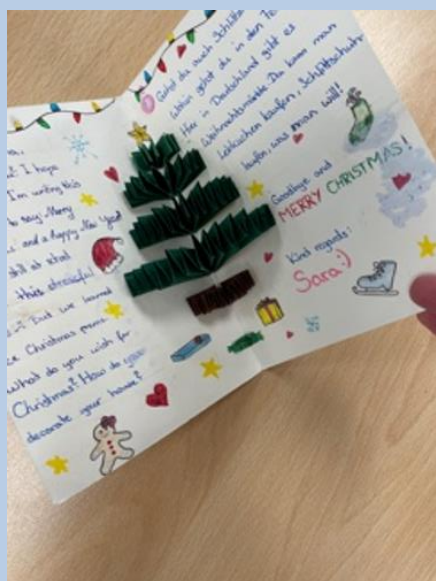 a,
! I hope
I'm writing this
to say: Merry
and a happy New Year!
still at
this stressful
? But we learned
Christmas
What do you wish for
Christmas? How do you
decorate your house?
Gehst du auch
gehst du in den
Hier in Deutschland gibt es
Weihnachtsmärkte. Da kann man
Lebkuchen kaufen, Schlittschuh
laufen, was man will!
Goodbye and
MERRY CHRISTMAS!
Kind regards:
Sara:)